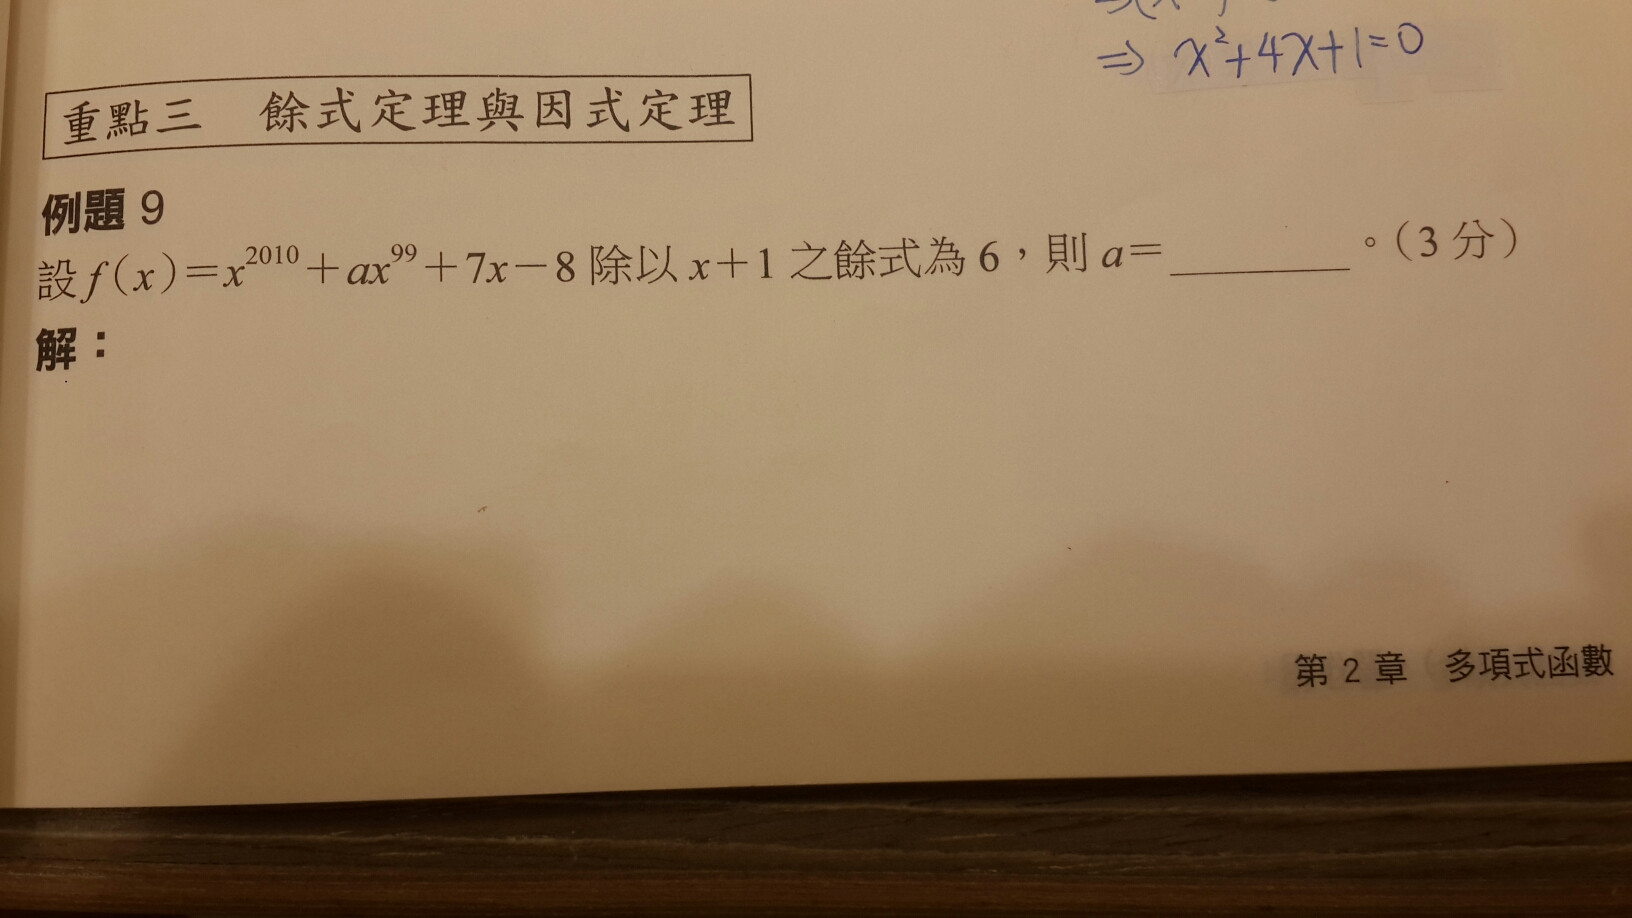 ⇒ x²+4x+1=0
重點三　餘式定理與因式定理
例題 9
設 f(x)=x²⁰¹⁰+ax⁹⁹+7x−8 除以 x+1 之餘式為 6，則 a=________。(3 分)
解：
第 2 章　多項式函數